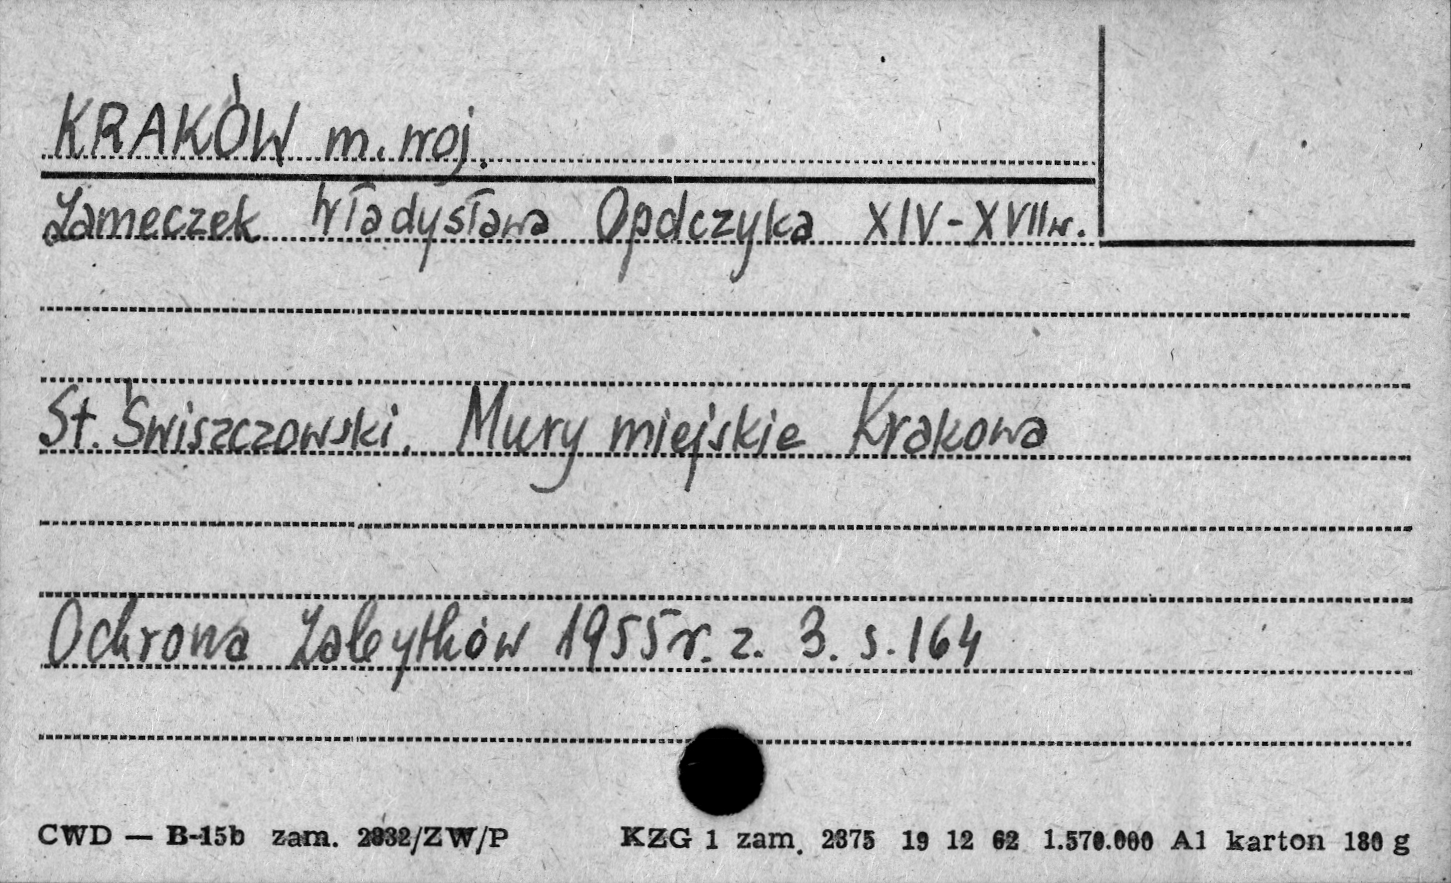 KRAKÓW m. woj.
Zameczek Władysława Opolczyka XIV-XVIIw.
St. Świszczowski. Mury miejskie Krakowa
Ochrona Zabytków 1955 r. z. 3. s. 164
CWD — B-15b zam. 2832/ZW/P KZG 1 zam. 2375 19 12 62 1.570.000 A1 karton 180 g